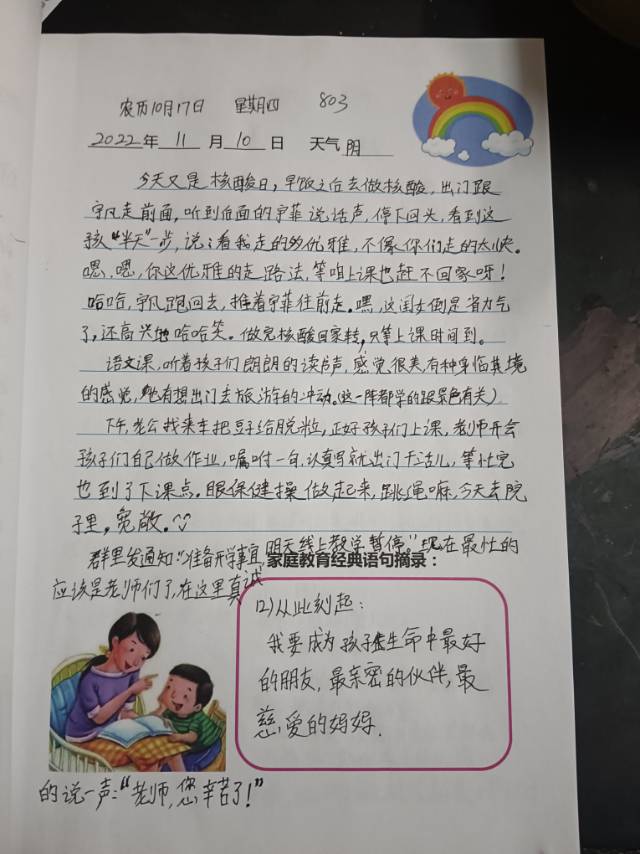 农历10月17日 星期四 803
2022年 11 月 10 日 天气 阴
今天又是核酸日，早饭之后去做核酸，出门跟
宇凡走前面，听到后面的宇菲说话声，停下回头，看到这
孩"半天"一步，说：看我走的多优雅，不像你们走的太快。
嗯，嗯，你这优雅的走路法，等咱上课也赶不回家呀！
哈哈，宇凡跑回去，推着宇菲往前走。嘿，这闺女倒是省力气
了，还高兴地哈哈笑。做完核酸回家转，只等上课时间到。
语文课，听着孩子们朗朗的读书声，感觉很美有种身临其境
的感觉，她有想出门去旅游的冲动。（这一阵都学的跟景色有关）
下午，老公找来车把豆子给脱粒，正好孩子们上课，老师开会
孩子们自己做作业，嘱咐一句，认真写就出门干活儿，等忙完
也到了下课点。眼保健操做起来，跳绳嘛，今天去院
子里，宽敞。
群里发通知："准备开学事宜，明天线上教学暂停"现在最忙的
应该是老师们了，在这里真诚
家庭教育经典语句摘录：
12）从此刻起：
我要成为孩子生命中最好
的朋友，最亲密的伙伴，最
慈爱的妈妈.
的说一声："老师，您辛苦了！"